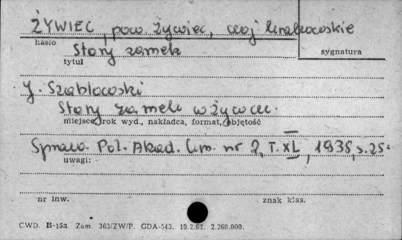 ŻYWIEC, pow. Żywiec, woj krakowskie
hasło
Stary zamek
sygnatura
tytuł
J. Szablowski
Stary zamek w Żywcu.
miejsce, rok wyd., nakładca, format, objętość
Spraw. Pol. Akad. Um. nr 2, T. XL, 1935, s. 25
uwagi:
nr inw.
znak klas.
CWD. H-15a Zam. 363/ZW/P. GDA-543. 19.2.61. 2.260.000.